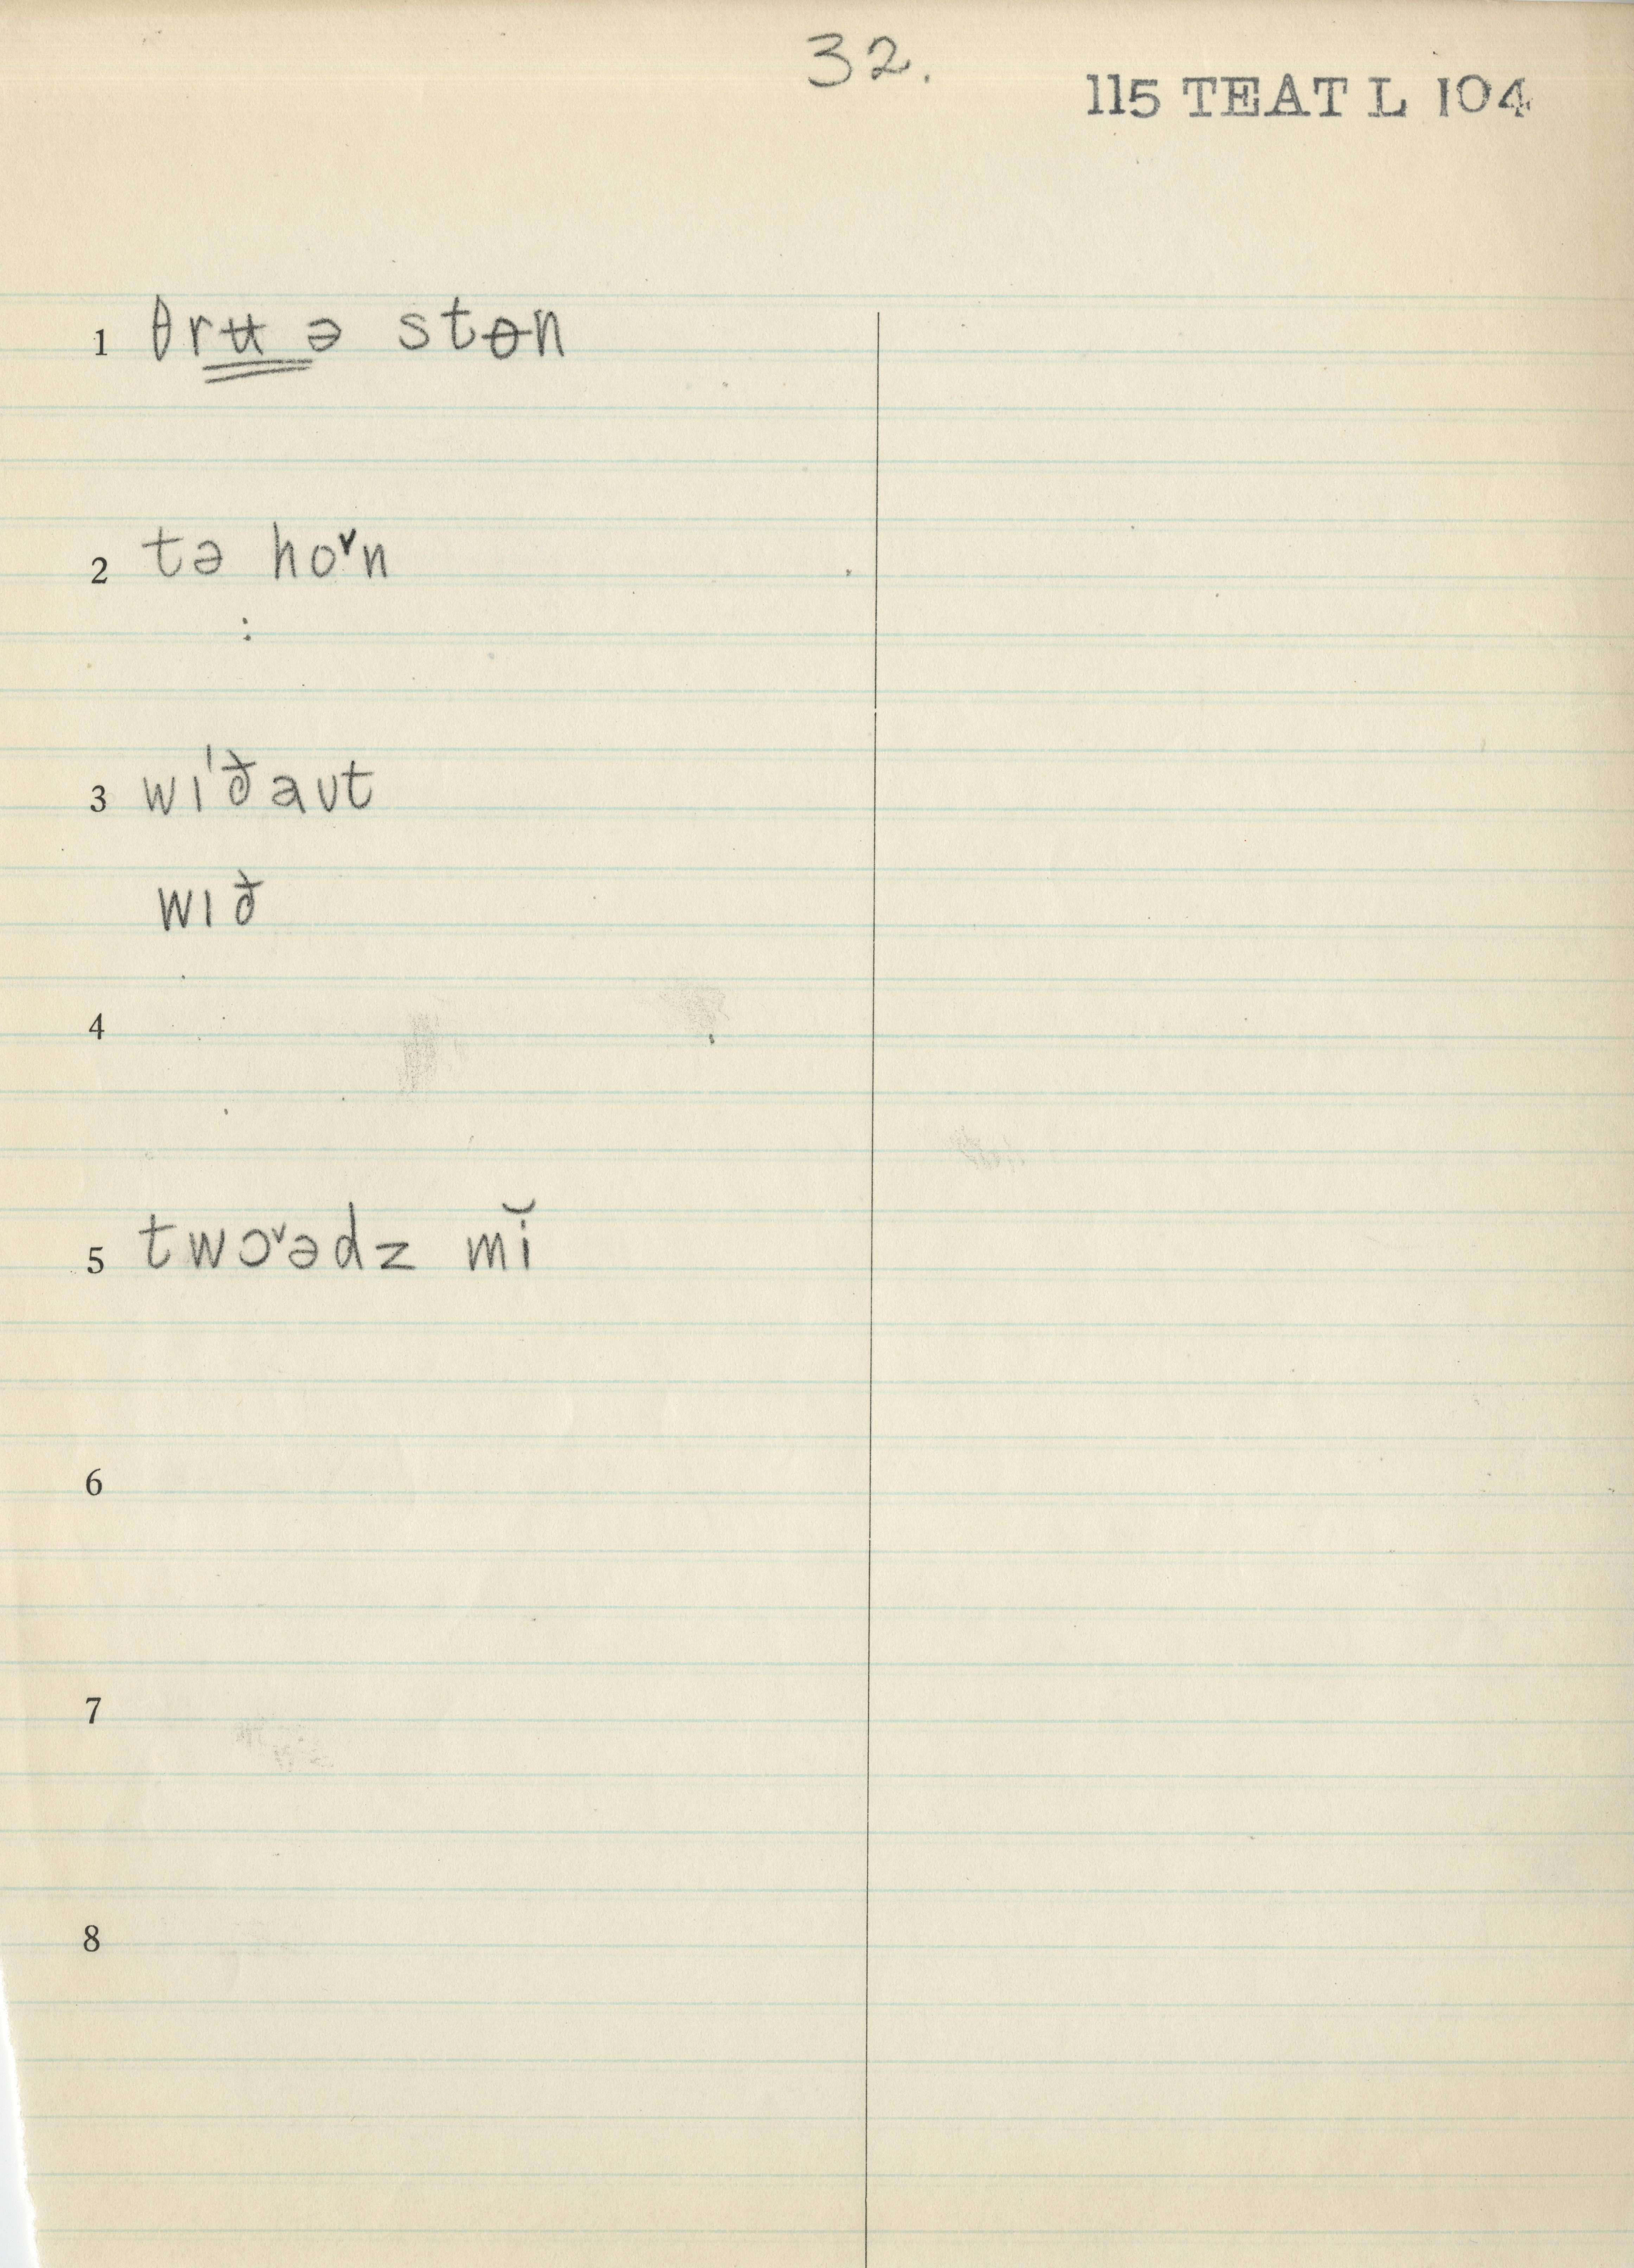 32.
115 TEAT L 104
1 θrʉ ə stɵn
2 tə ho˅n
:
3 wɪ'ðaʊt
wɪð
4
5 twɔ˅ədz mĭ
6
7
8